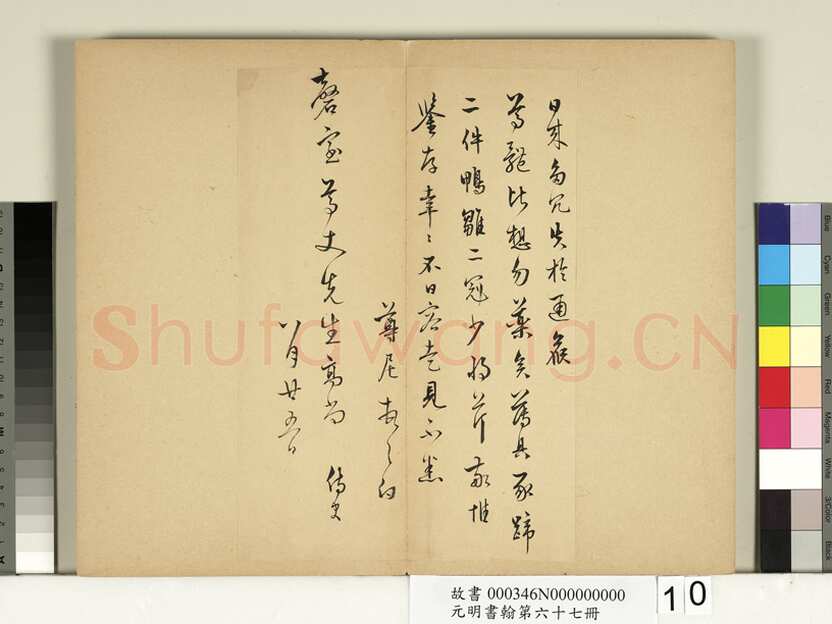 日來匆冗失於通候
尊體比想勿藥矣薄具豕蹄
二件鴨雛二冠少將芹敬惟
鑒存幸〻不日容走見不悉
尊尼
磬室尊丈先生高尚 侍史
八月廿五日
Shufawang.CN
故書 000346N000000000
元明書翰第六十七冊
10
Blue
Cyan
Green
Yellow
Red
Magenta
White
3/Color
Black